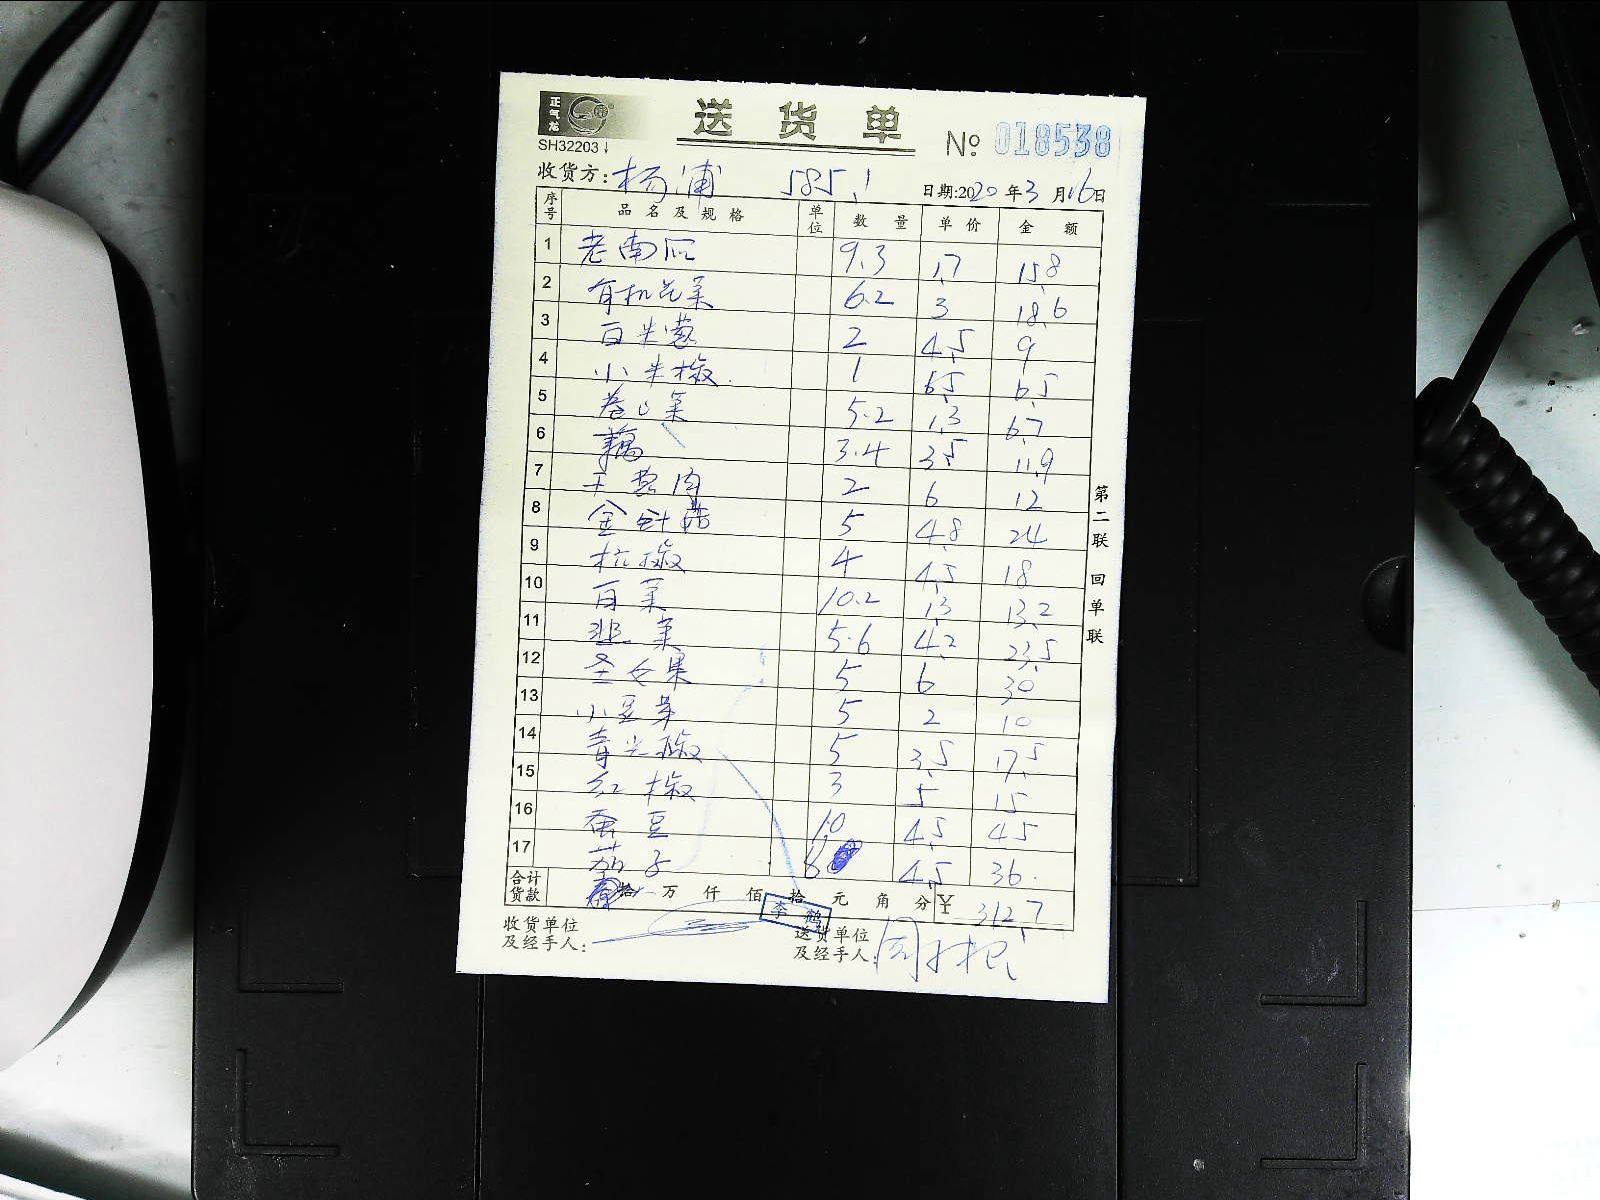 正气龙
SH32203
送货单
№ 018538
收货方: 杨浦 585.1
日期:2020年3月16日
序号 品名及规格 单位 数量 单价 金额
1 老南瓜 9.3 1.7 15.8
2 有机花菜 6.2 3 18.6
3 百米葱 2 4.5 9
4 小米椒 1 6.5 6.5
5 卷心菜 5.2 1.3 6.7
6 藕 3.4 3.5 11.9
7 2 6 12
8 金针菇 5 4.8 24
9 杭椒 4 4.5 18
10 百菜 10.2 1.3 13.2
11 韭菜 5.6 4.2 23.5
12 圣女果 5 6 30
13 小豆芽 5 2 10
14 青尖椒 5 3.5 17.5
15 红椒 3 5 15
16 蚕豆 10 4.5 45
17 茄子 8 4.5 36
合计货款 拾 万 仟 佰 拾 元 角 分 ¥ 312.7
李鹤
收货单位及经手人:
送货单位及经手人:
第二联 回单联